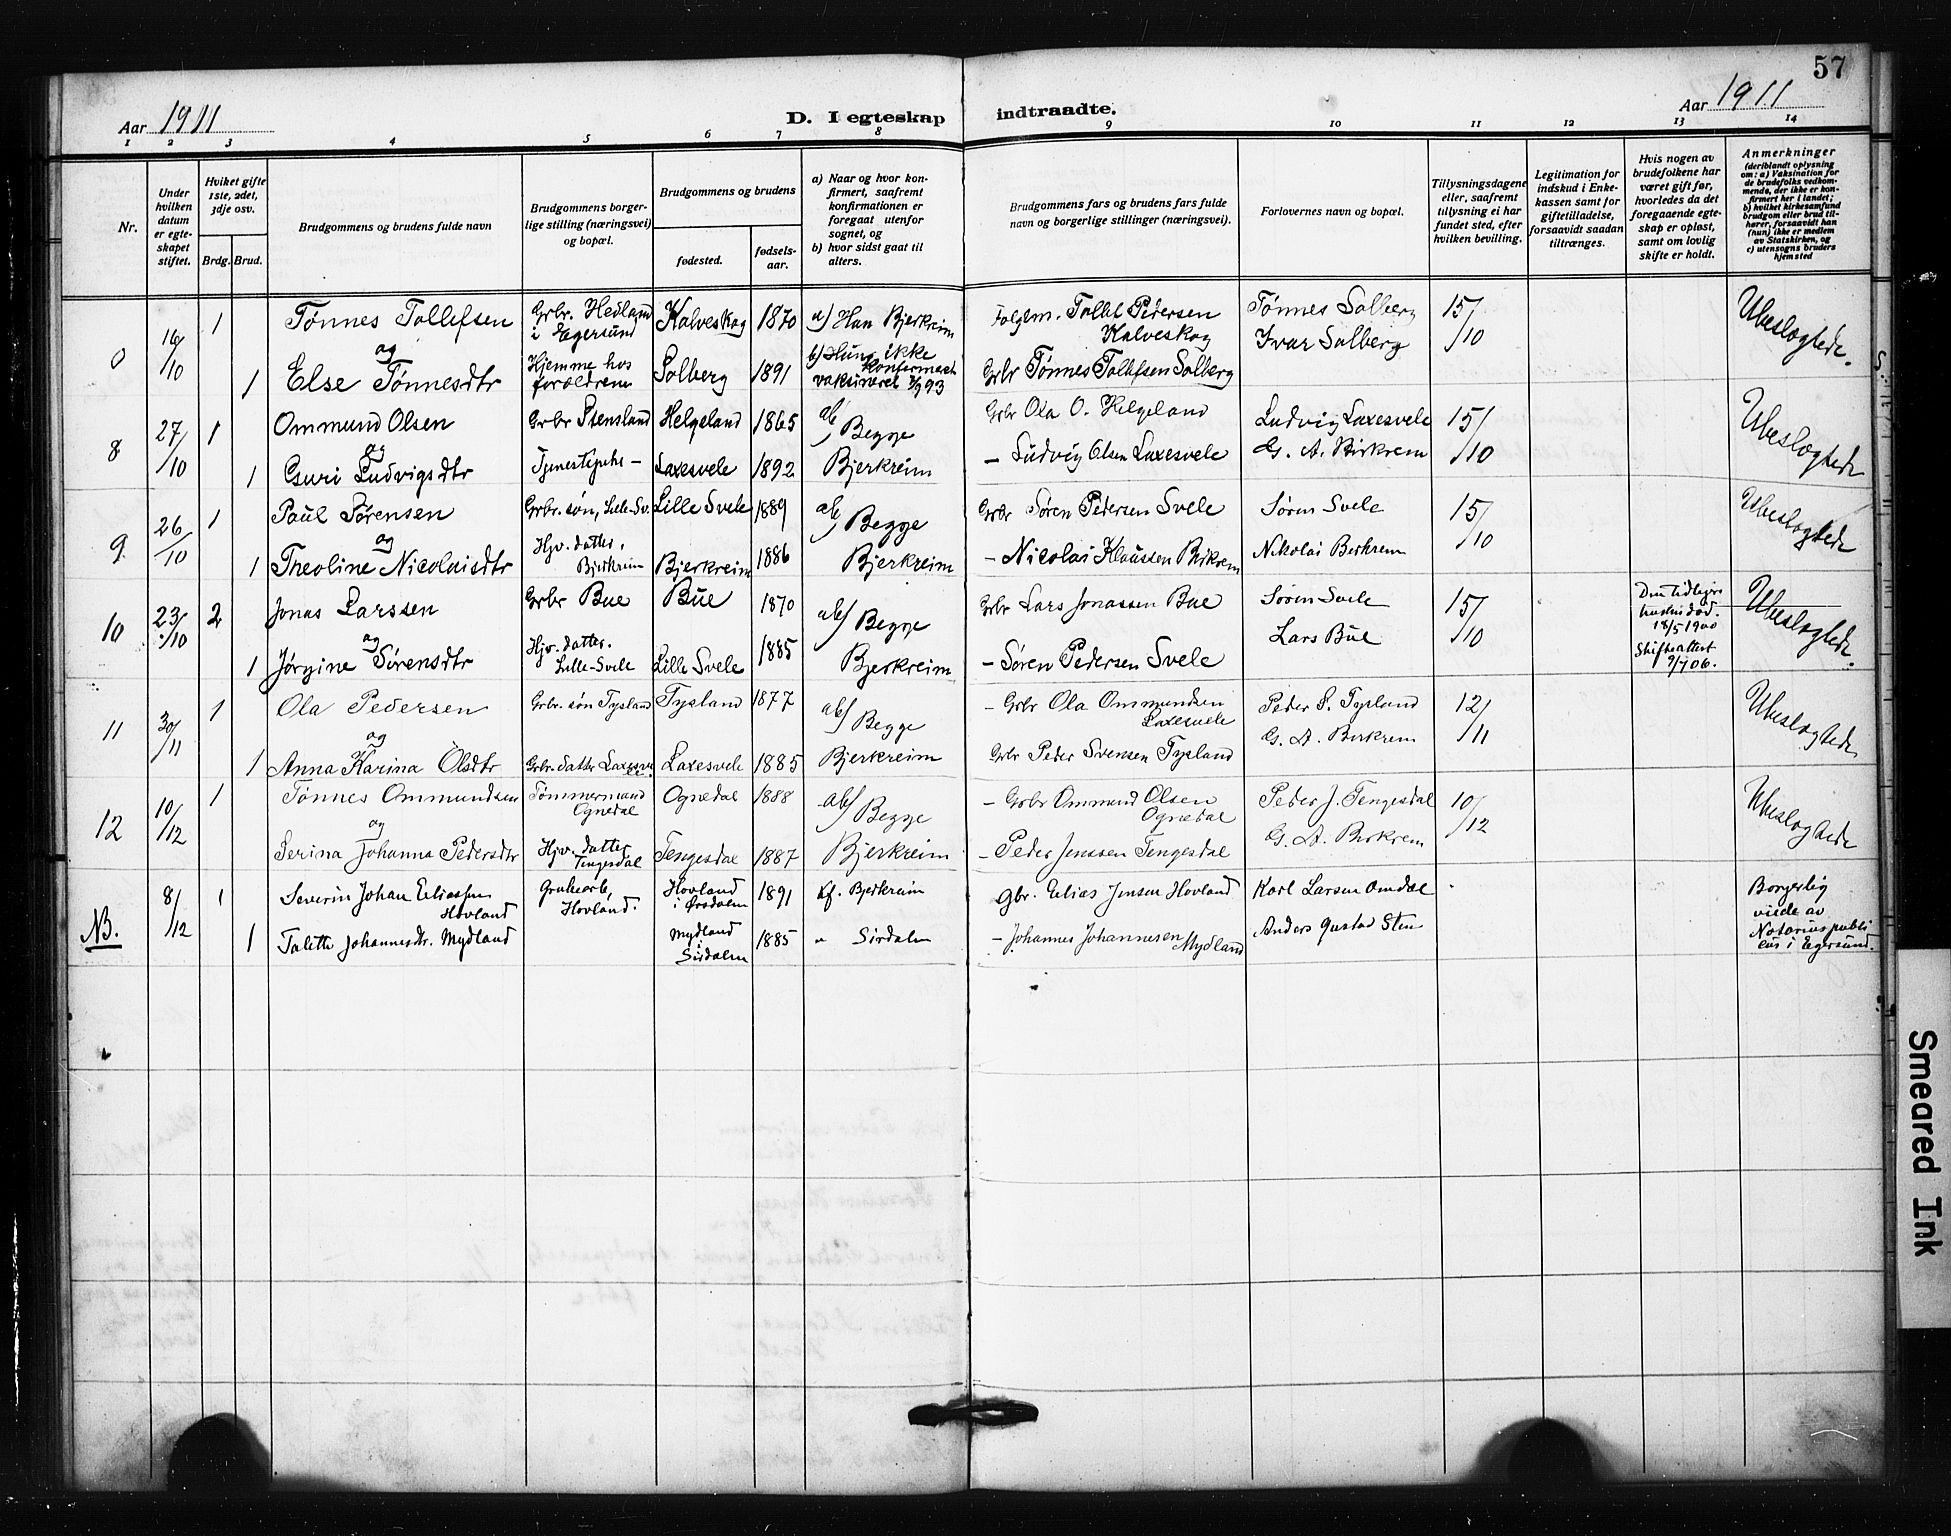 57
Aar 1911
D. I egteskap indtraadte.
Aar 1911
1 2 3 4 5 6 7 8 9 10 11 12 13 14
Nr.
Under hvilken datum er egteskapet stiftet.
Hviket gifte 1ste, 2det, 3dje osv.
Brdg. Brud.
Brudgommens og brudens fulde navn
Brudgommens borgerlige stilling (næringsvei) og bopæl.
Brudgommens og brudens
fødested.
fødselsaar.
a) Naar og hvor konfirmert, saafremt konfirmationen er foregaat utenfor sognet, og
b) hvor sidst gaat til alters.
Brudgommens fars og brudens fars fulde navn og borgerlige stillinger (næringsvei).
Forlovernes navn og bopæl.
Tillysningsdagene eller, saafremt tillysning ei har fundet sted, efter hvilken bevilling.
Legitimation for indskud i Enkekassen samt for giftetilladelse, forsaavidt saadan tiltrænges.
Hvis nogen av brudefolkene har været gift før, hvorledes da det foregaaende egteskap er opløst, samt om lovlig skifte er holdt.
Anmerkninger
(deriblandt oplysning om: a) Vaksination for de brudefolks vedkommende, der ikke er konfirmert her i landet; b) hvilket kirkesamfund brudgom eller brud tilhører, forsaavidt han (hun) ikke er medlem av Statskirken, og c) utensogns bruders hjemsted
16/10 1 Tønnes Tollefsen Grbr. Hedland i Egersund Kalveskog 1870 a) Han Bjerkreim Tollef Pedersen Kalveskog Tønnes Solberg 15/10 Ubeslogtede.
og
1 Else Tønnesdtr Hjemme hos forældrene Solberg 1891 b) Hun ikke konfirmert vaksineret 93 Grbr Tønnes Tollefsen Solberg Ivar Solberg
8 27/10 1 Ommund Olsen Grbr Stensland Helgeland 1865 ab) Begge Grbr Ola O. Helgeland Ludvig Laxesvele 15/10 Ubeslogtede
og
1 Guri Ludvigsdtr Tjenestepike – Laxesvele 1892 Bjerkreim – Ludvig Olsen Laxesvele G. A. Birkrem
9 26/10 1 Paul Sørensen Grbr. søn, Lille-Sv. Lille Svele 1889 ab) Begge Grbr Søren Pedersen Svele Søren Svele 15/10 Ubeslogtede
og
1 Theoline Nicolaisdtr Hjv. datter, Bjerkreim Bjerkreim 1886 Bjerkreim – Nicolai Klaussen Birkrem Nikolai Berkrem
10 23/10 2 Jonas Larssen Grbr Bue Bue 1870 ab) Begge Grbr Lars Jonassen Bue Søren Svele 15/10 Den tidligere hustru død. 18/5 1900 Ubeslogtede.
og
1 Jørgine Sørensdtr Hjv. datter. Lille-Svele Lille Svele 1885 Bjerkreim – Søren Pedersen Svele Lars Bue Skifteattest 9/7 06.
11 30/11 1 Ola Pedersen Grbr. søn Tysland Tysland 1877 ab) Begge – Grbr Ola Ommundsen Laxesvele Peder S. Tysland 12/11 Ubeslogtede
og
1 Anna Karina Olsdtr Grbr. datter Laxesve. Laxesvele 1885 Bjerkreim Grbr Peder Svensen Tysland G. A. Berkrem
12 10/12 1 Tønnes Ommundsen Tømmermand Ognedal Ognedal 1888 ab) Begge – Grbr Ommund Olsen Ognedal Peder J. Tengesdal 10/12 Ubeslogtede
og
1 Serina Johanna Pedersdtr Hjv. datter Tengesdal Tengesdal 1887 Bjerkreim – Peder Jenssen Tengesdal G. A. Birkrem
NB. 8/12 1 Severin Johan Eliassen Hovland Grubearb, Hovland. Hovland i Ørsdalen 1891 kf. Bjerkreim Gbr. Elias Jensen Hovland Karl Larsen Omdal Borgerlig viede av Notarius publicus i Egersund.
1 Talette Johannesdtr. Mydland Mydland Sirdalen 1885 " Sirdalen – Johannes Johannesen Mydland Anders Gustav Sten
Smeared Ink